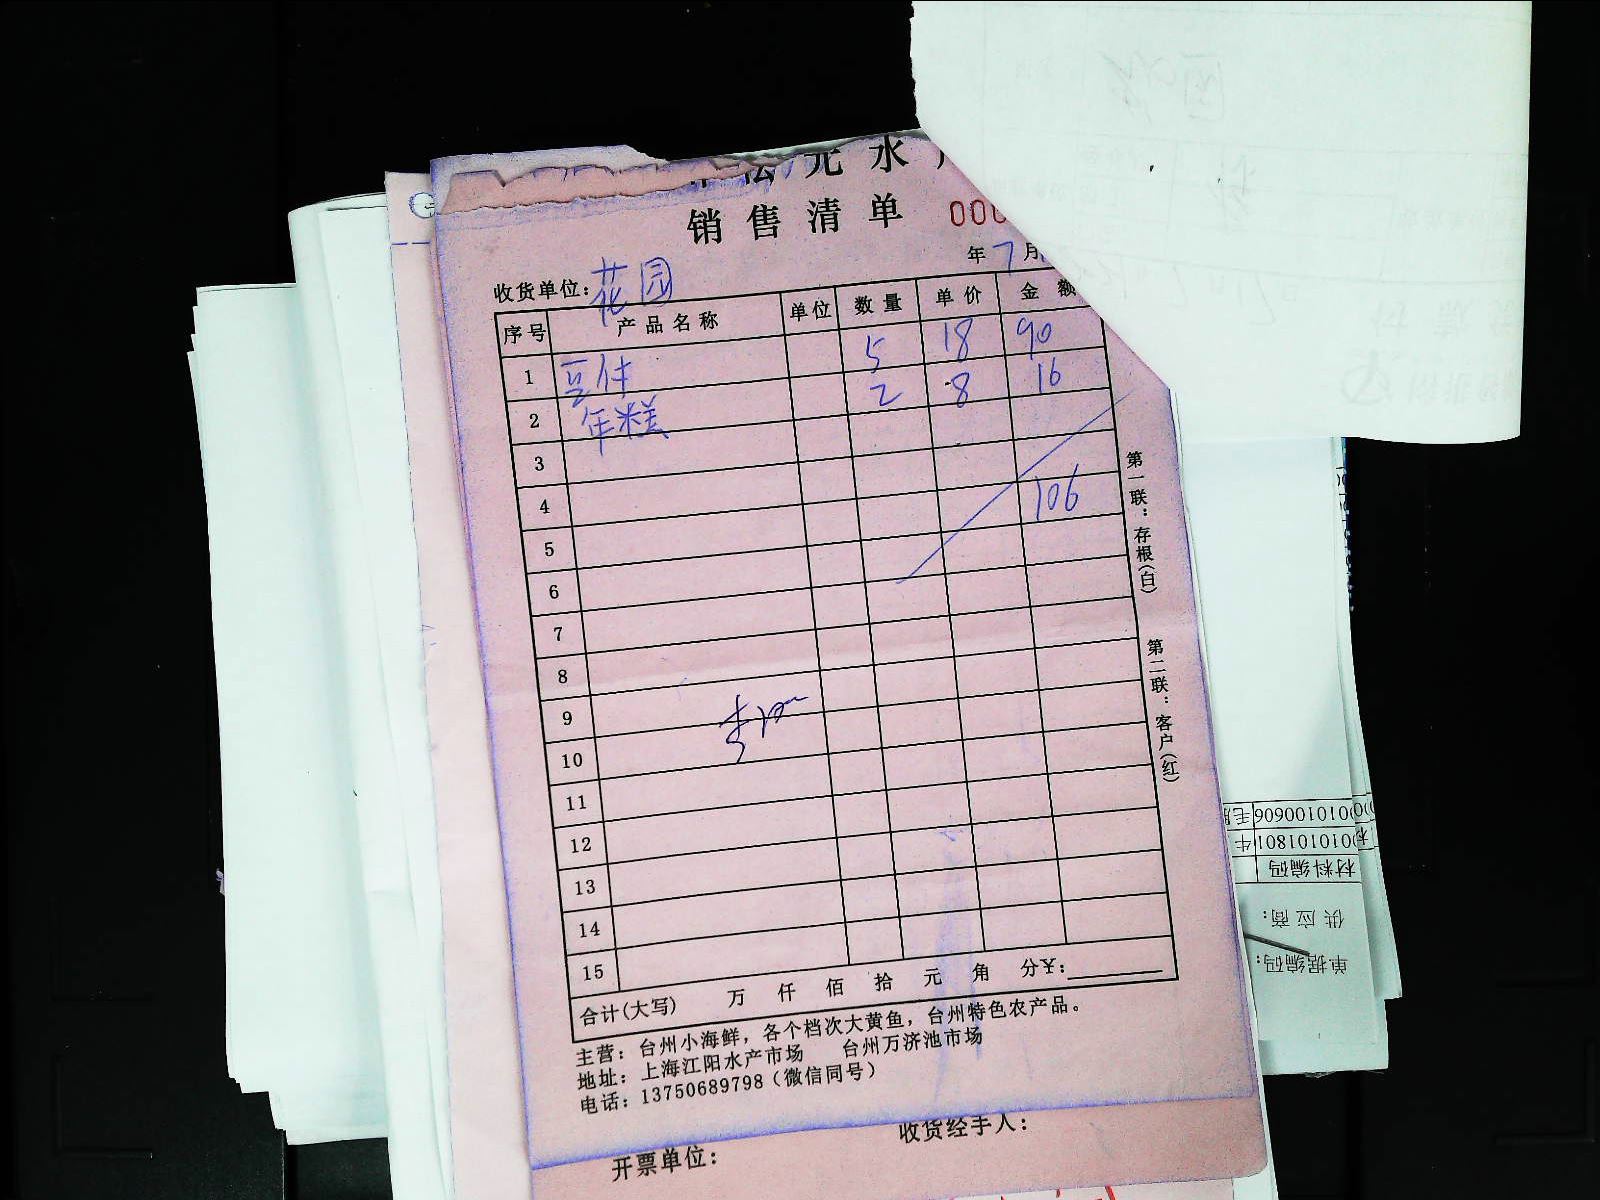 松元水产
销售清单 000
年7月
收货单位：花园
序号 产品名称 单位 数量 单价 金额
1 豆付 5 18 90
2 年糕 2 8 16
3
4 106
5
6
7
8
9
10
11
12
13
14
15
合计(大写) 万 仟 佰 拾 元 角 分¥：
主营：台州小海鲜，各个档次大黄鱼，台州特色农产品。
地址：上海江阳水产市场 台州万济池市场
电话：13750689798（微信同号）
第一联：存根(白)
第二联：客户(红)
收货经手人：
开票单位：
单据编码：
供应商：
材料编码